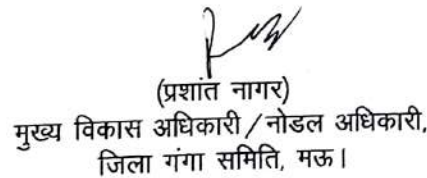 (प्रशांत नागर)
मुख्य विकास अधिकारी/नोडल अधिकारी,
जिला गंगा समिति, मऊ।